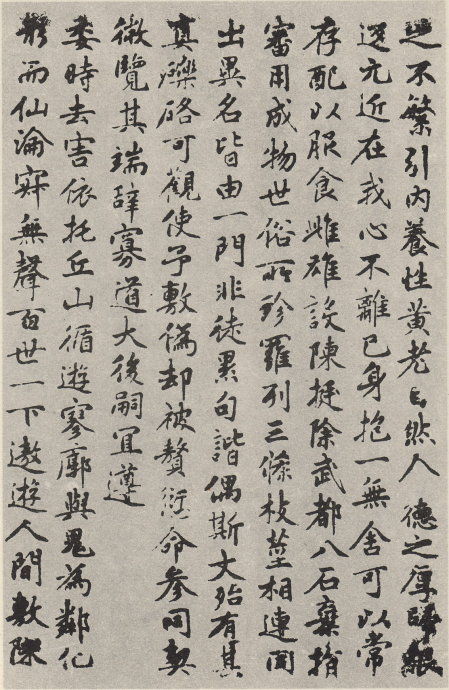 之不繁引内養性黄老自然含德之厚歸根
返元近在我心不離己身抱一無舍可以常
存配以服食雌雄設陳挺除武都八石棄捐
審用成物世俗所珍羅列三條枝莖相連同
出異名皆由一門非徒累句諧偶斯文殆有其
真礫硌可觀使予敷偽却被贅愆命參同契
微覽其端辭寡道大後嗣宜遵
委時去害依托丘山循遊寥廓與鬼為鄰化
形而仙淪寂無聲百世一下遨遊人間敷陳